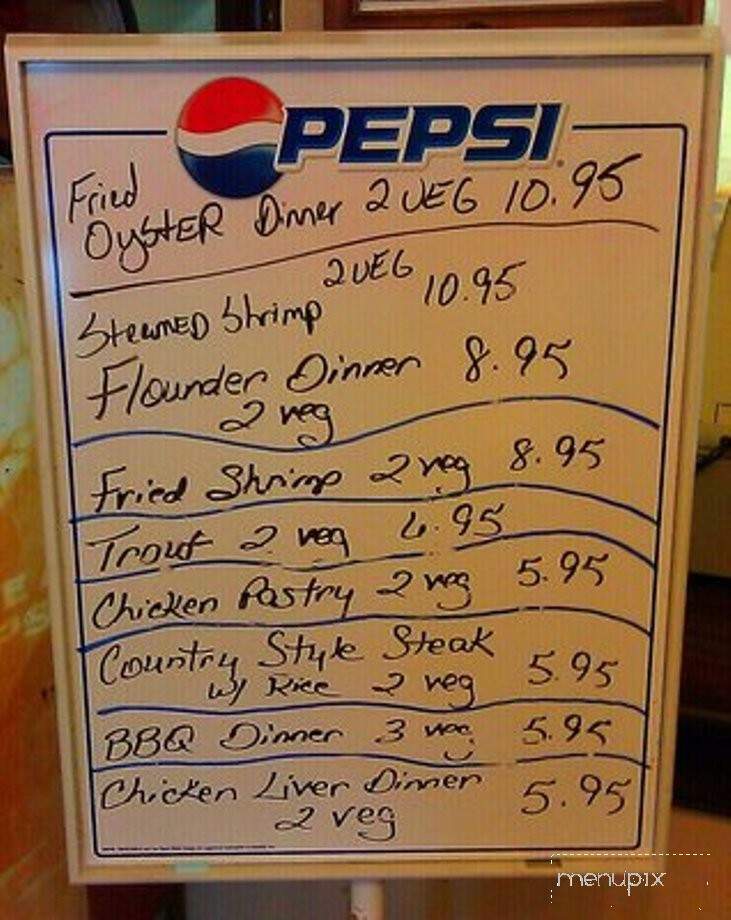 PEPSI
Fried
OySTER Dinner 2 VEG 10.95
2 VEG
Steamed Shrimp 10.95
Flounder Dinner 8.95
2 veg
Fried Shrimp 2 veg 8.95
Trout 2 veg 6.95
Chicken Pastry 2 veg 5.95
Country Style Steak
w/ Rice 2 veg 5.95
BBQ Dinner 3 veg 5.95
Chicken Liver Dinner 5.95
2 veg
menupix